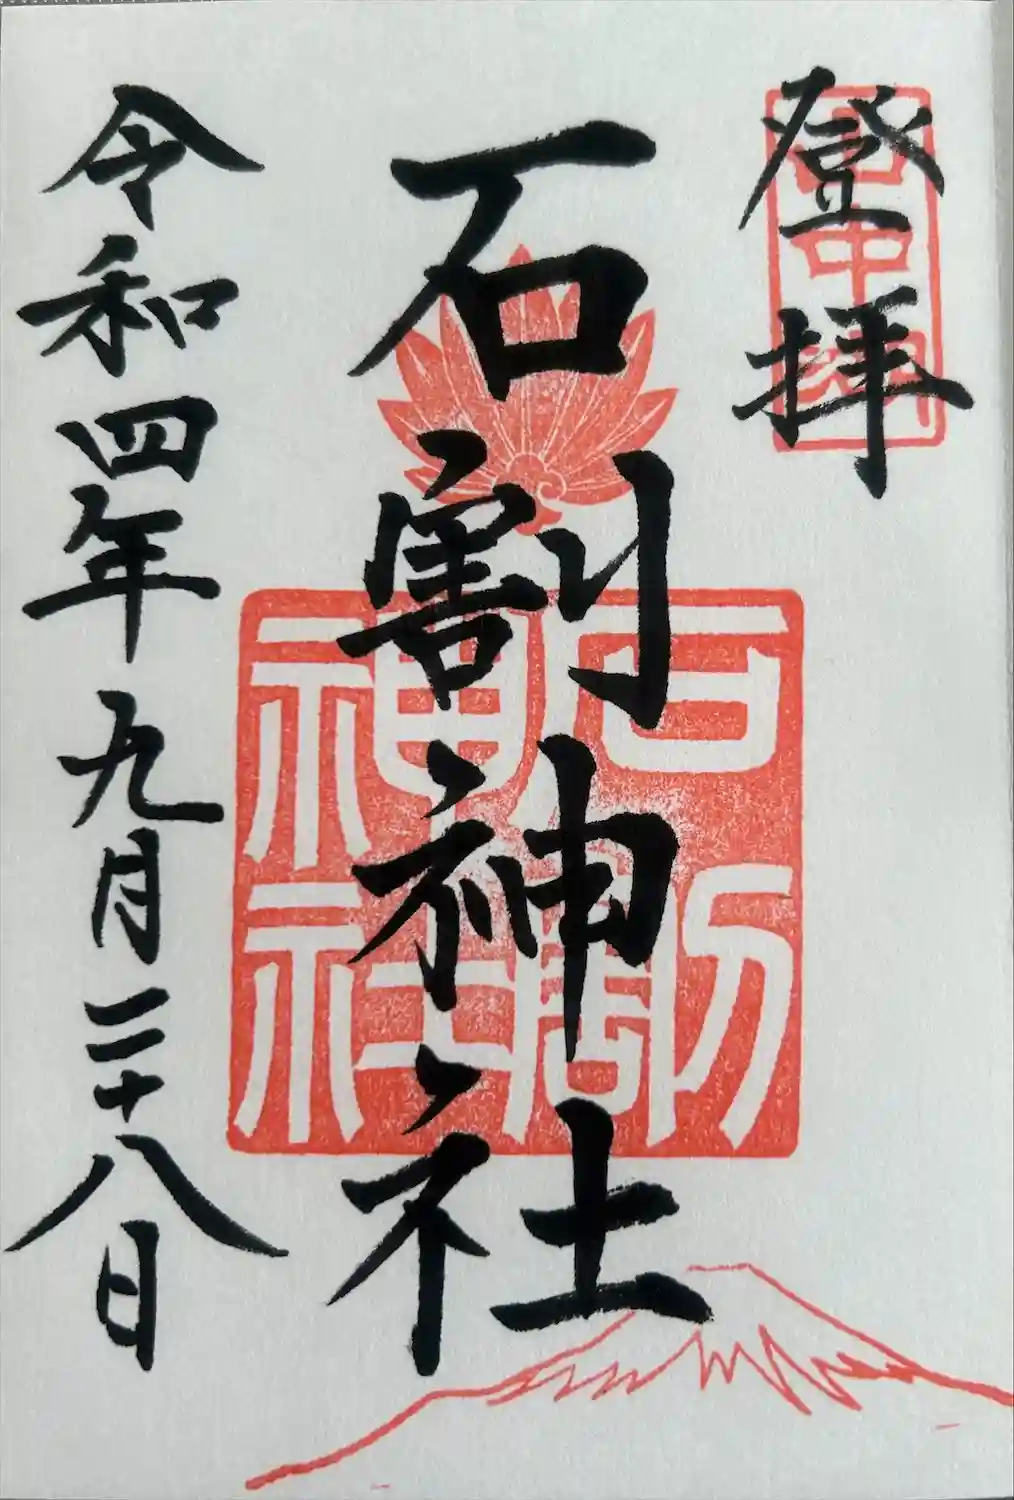 登拝
石割神社
石割
神社
令和四年九月二十八日